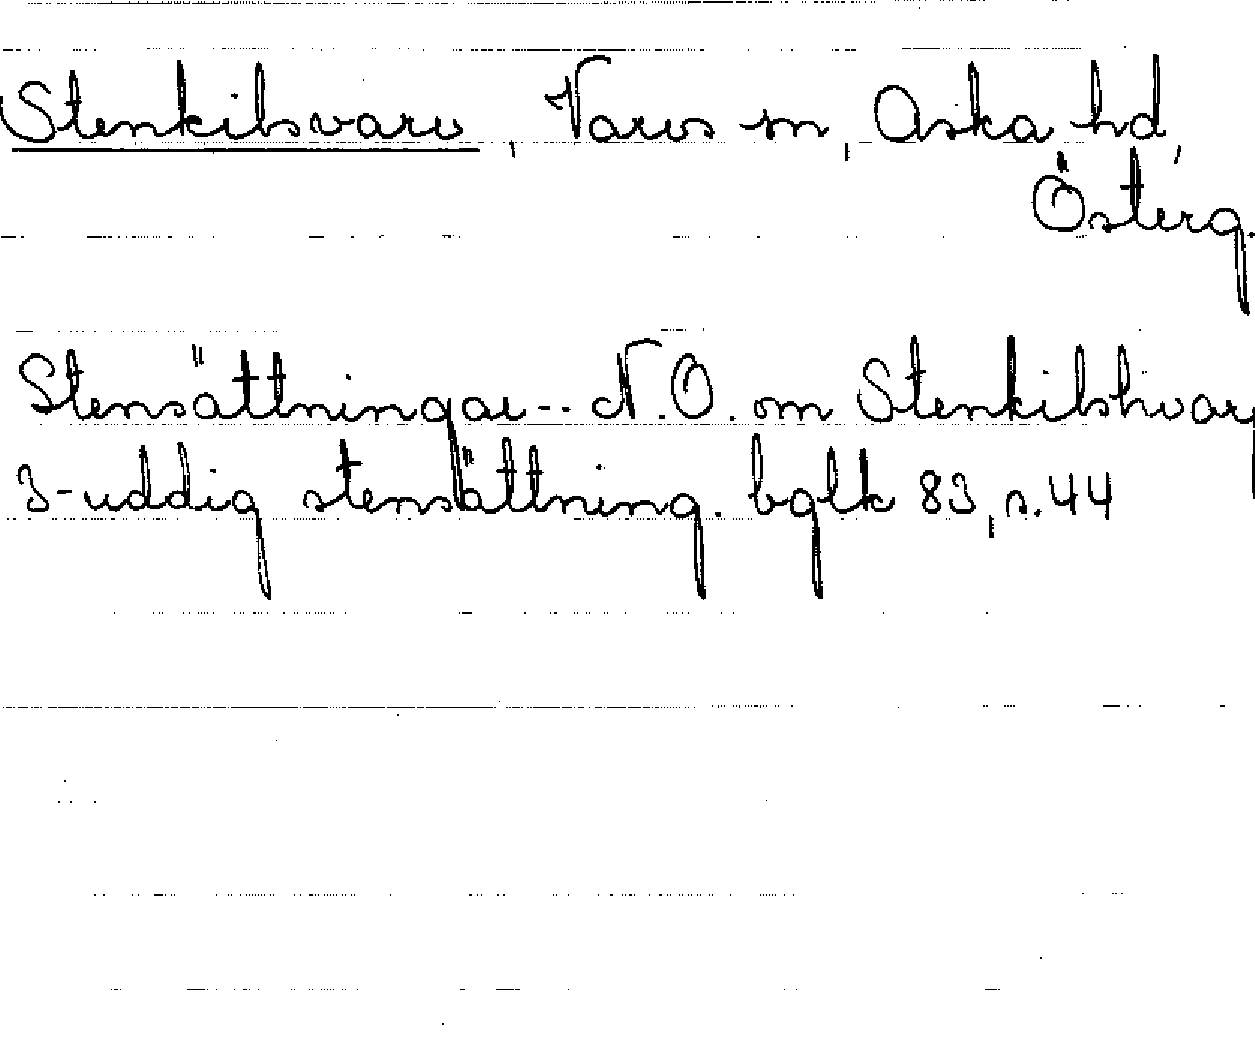 Stenkilsvarv, Varvs sn, Aska hd,
Österg.
Stensättningar -- N.O. om Stenkilshvarf
3-uddig stensättning. bglk 83, s. 44